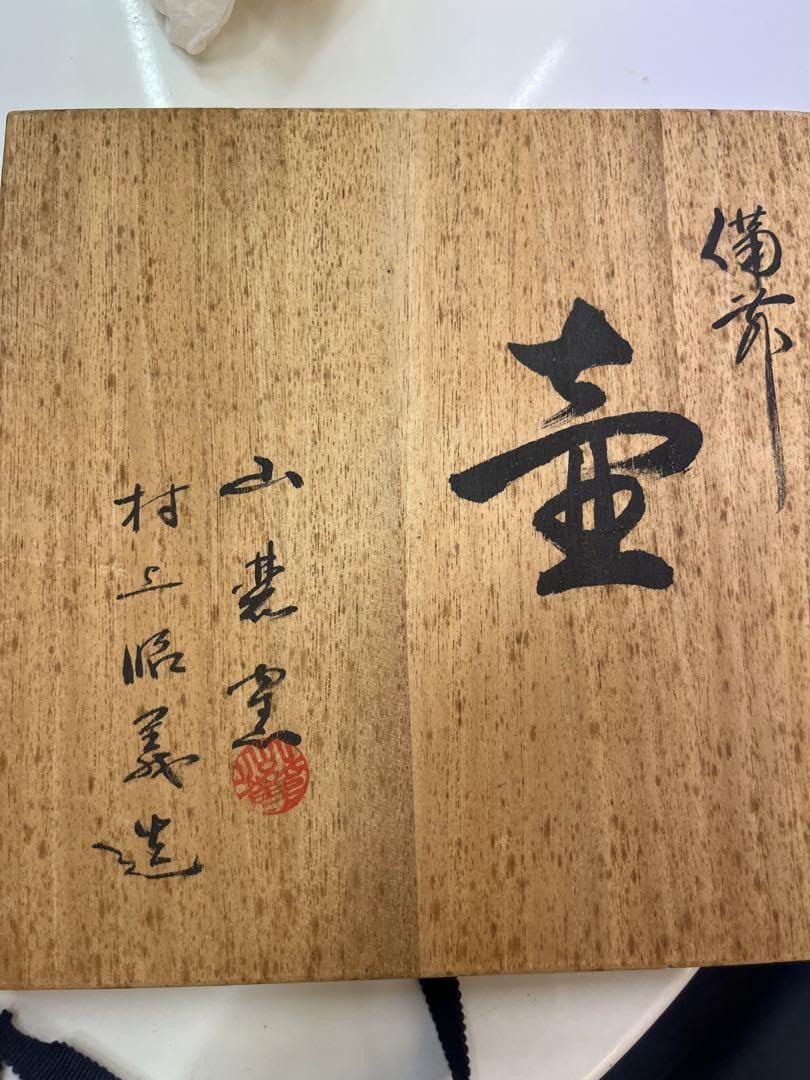 備前
壷
山 窯
村上昭義造